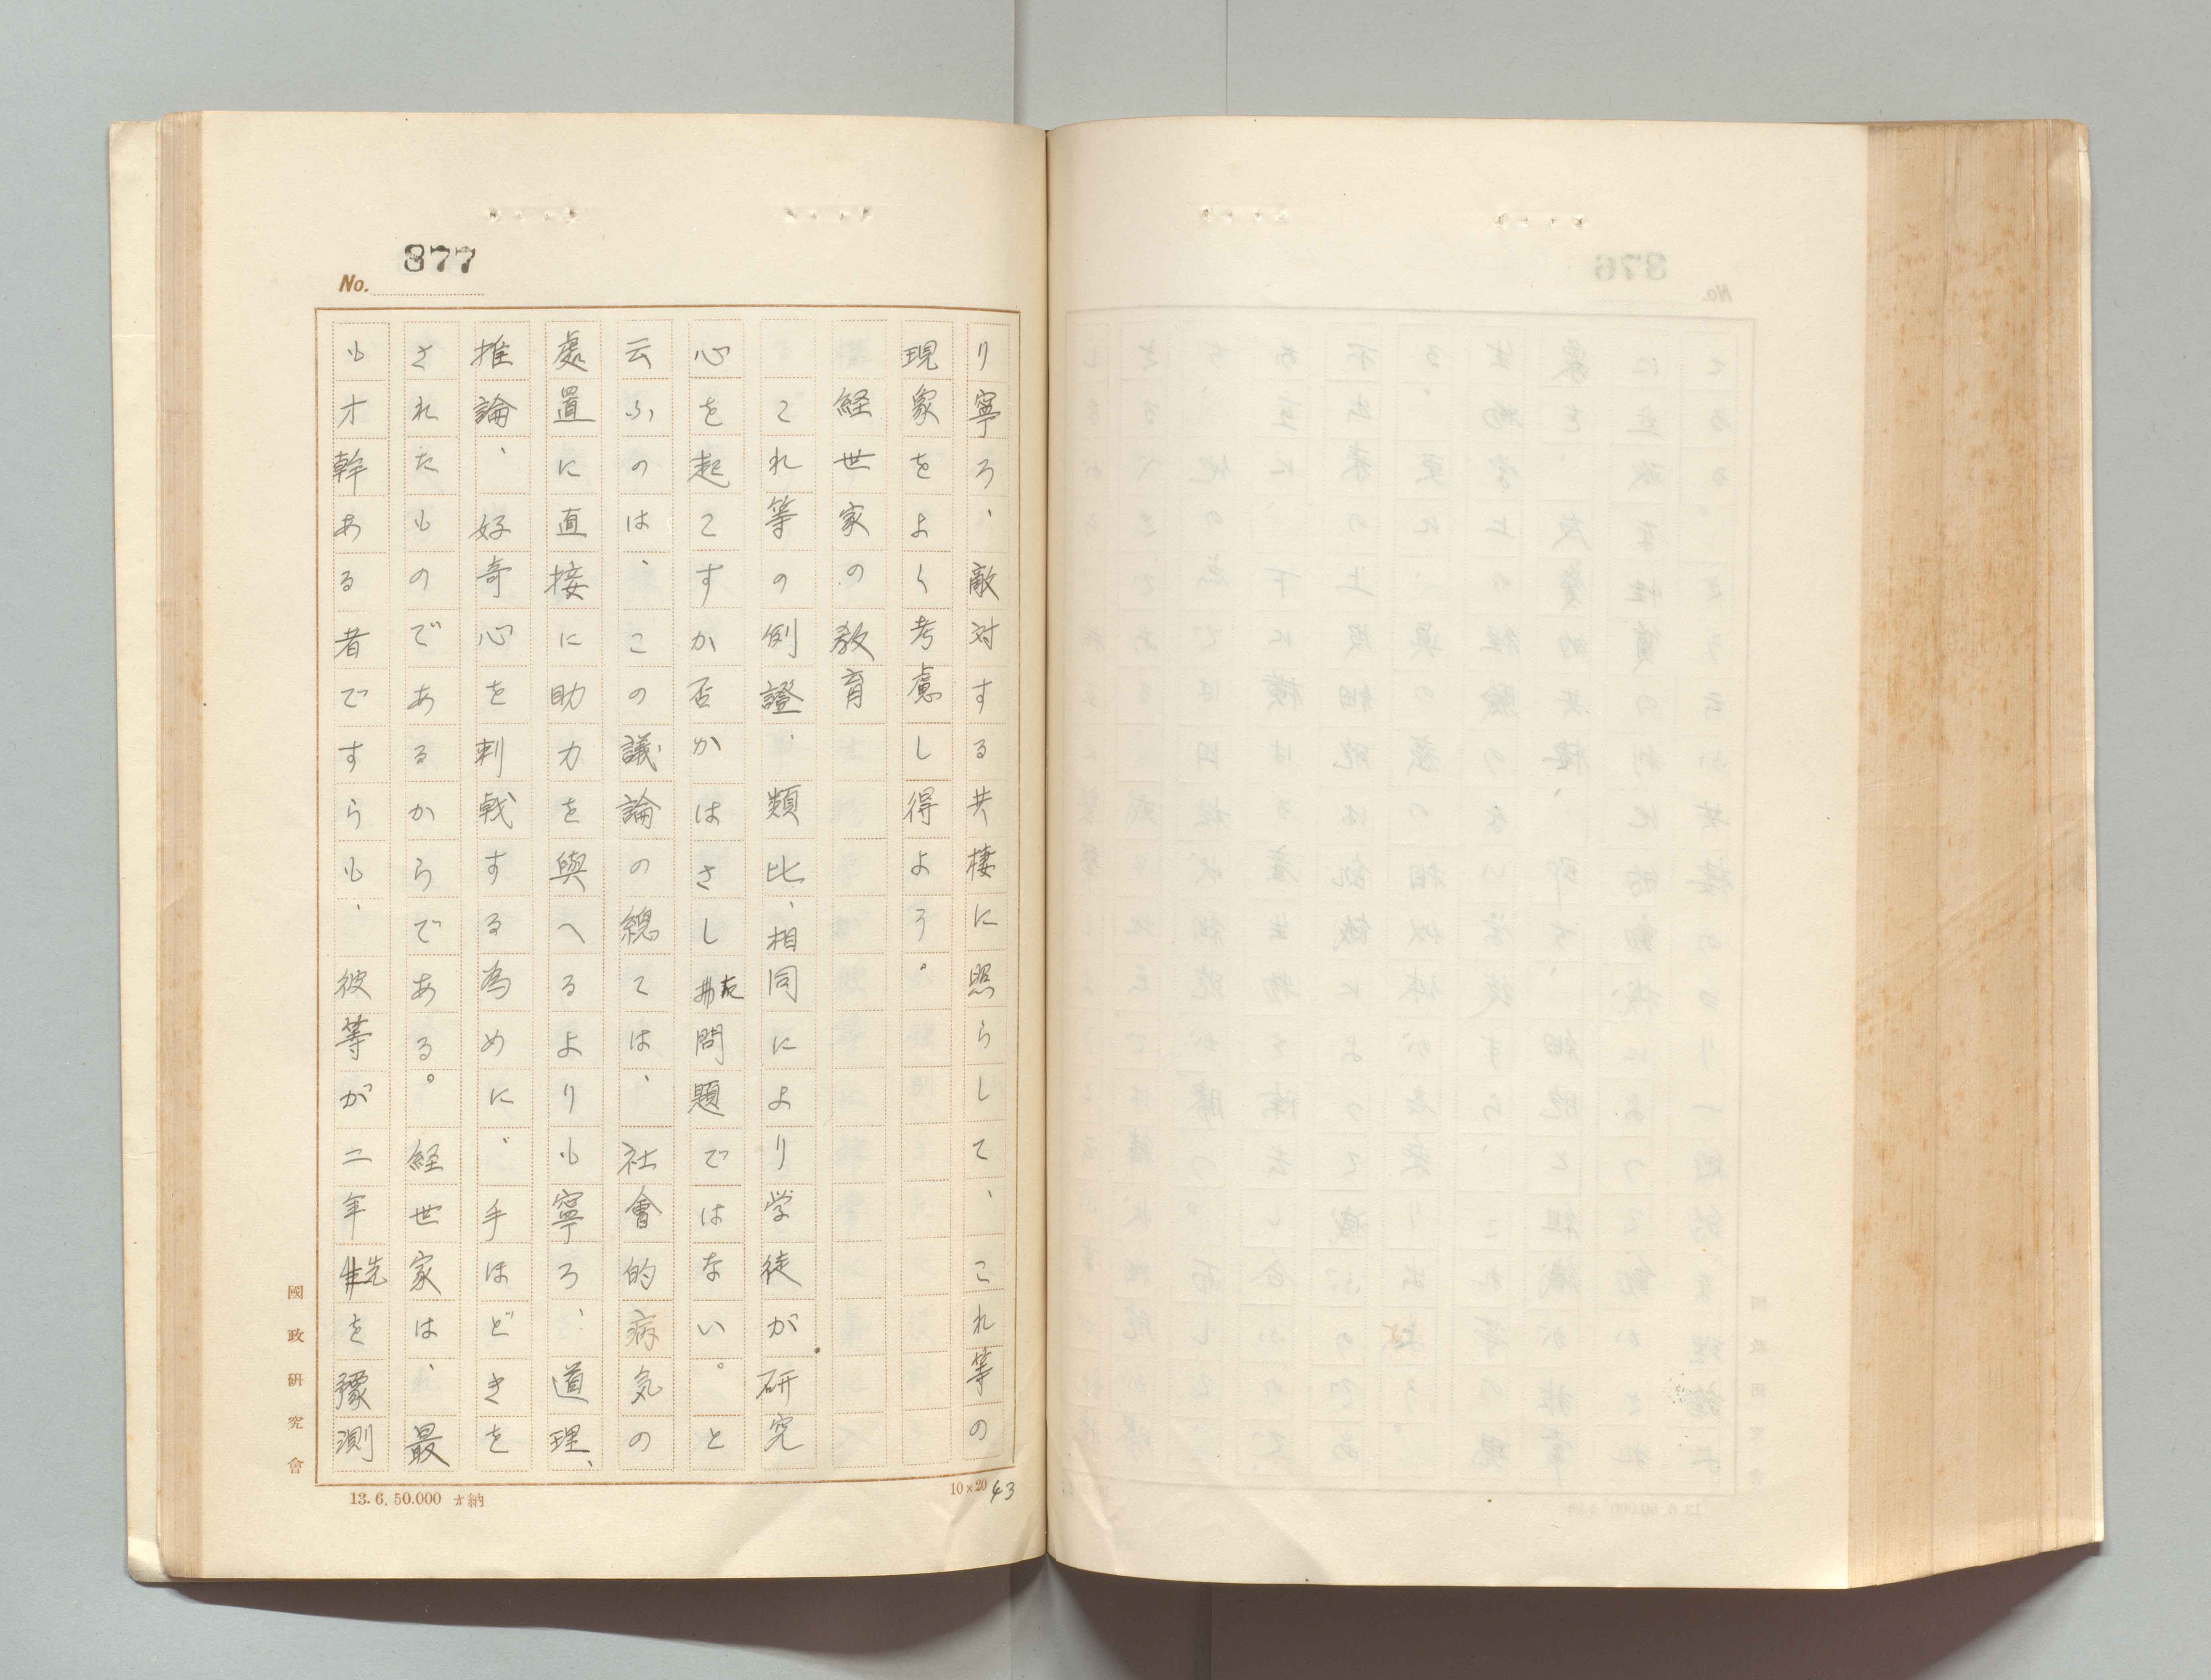 No. 377
り寧ろ、敵対する共棲に照らして、これ等の
現象をよく考慮し得よう。
経世家の教育
これ等の例證、類比、相同により学徒が研究
心を起こすか否かはさし問題ではない。と
云ふのは、この議論の總ては、社會的病気の
處置に直接に助力を與へるよりも寧ろ、道理、
推論、好奇心を刺戟する為めに、手ほどきを
されたものであるからである。経世家は、最
も才幹ある者ですらも、彼等が二年先を豫測
國政研究會
13.6.50.000 納
10×20
43